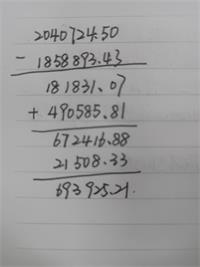 2040724.50
- 1858893.43
181831.07
+ 490585.81
672416.88
21508.33
693925.21.